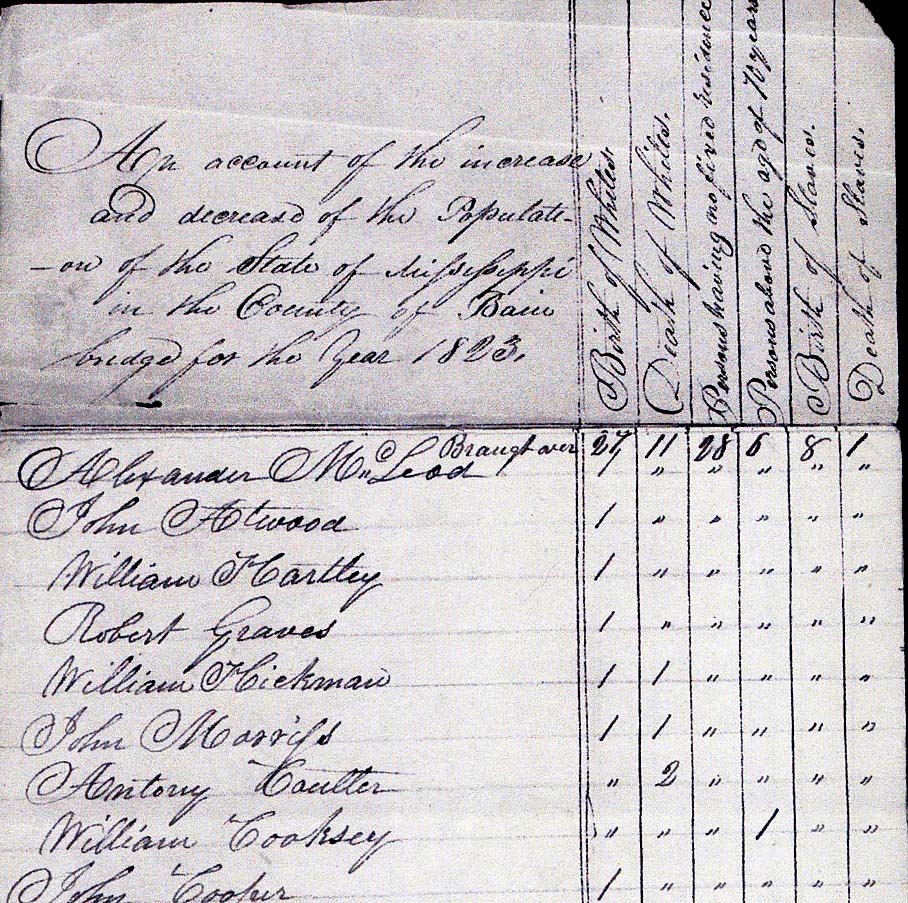 An account of the increase
and decrease of the Populati-
-on of the State of Mississippi
in the County of Bain
bridge for the Year 1823.
Birth of Whites.
Death of Whites.
Persons having no fixed residence
Persons above the age of 70 years
Birth of Slaves.
Death of Slaves.
Braught over 27 11 28 6 8 1
Alexander McLeod " " " " " "
John Atwood 1 " " " " "
William Hartley 1 " " " " "
Robert Graves 1 " " " " "
William Hickman 1 1 " " " "
John Morriss 1 1 " " " "
Antony Coulter " 2 " " " "
William Cooksey " " " 1 " "
John Cooper 1 " " " " "